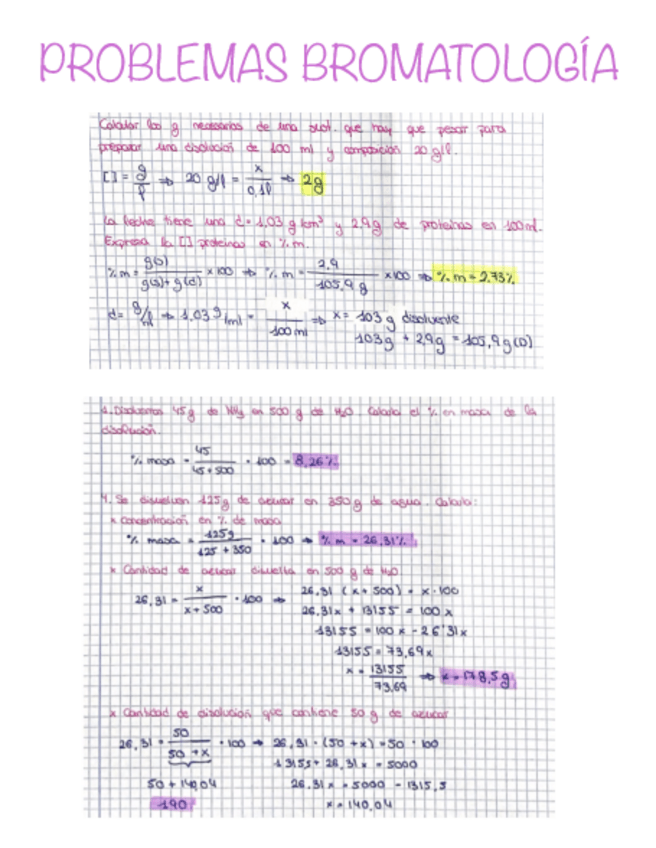 PROBLEMAS BROMATOLOGÍA
Calcular los g necesarios de una sust. que hay que pesar para
preparar una disolución de 100 ml y composición 20 g/l.
[] = g/l ⇒ 20 g/l = x/0,1l ⇒ 2g
La leche tiene una d = 1,03 g/cm³ y 2,9g de proteínas en 100ml.
Expresa la [] proteínas en % m.
% m = g(s)/g(s)+g(d) × 100 ⇒ % m = 2,9/105,9 g × 100 ⇒ % m = 2,73%
d = g/ml ⇒ 1,03 g/ml = x/100 ml ⇒ x = 103 g disolvente
103g + 2,9g = 105,9g (D)
1. Disolvemos 45g de NH₃ en 500 g de H₂O Calcula el % en masa de la
disolución.
% masa = 45/45+500 · 100 = 8,26%
4. Se disuelven 125g de azucar en 350g de agua. Calcula:
* Concentración en % de masa
% masa = 125g/125 + 350 · 100 ⇒ % m = 26,31%
* Cantidad de azucar disuelta en 500 g de H₂O
26,31 = x/x+500 · 100 ⇒ 26,31 (x + 500) = x · 100
26,31x + 13155 = 100 x
13155 = 100 x - 26'31x
13155 = 73,69x
x = 13155/73,69 ⇒ x = 178,5g
* Cantidad de disolución que contiene 50 g de azucar
26,31 = 50/50 + x · 100 ⇒ 26,31 · (50 + x) = 50 · 100
13155 + 26,31x = 5000
50 + 140,04 26,31x = 5000 - 1315,5
190 x = 140,04